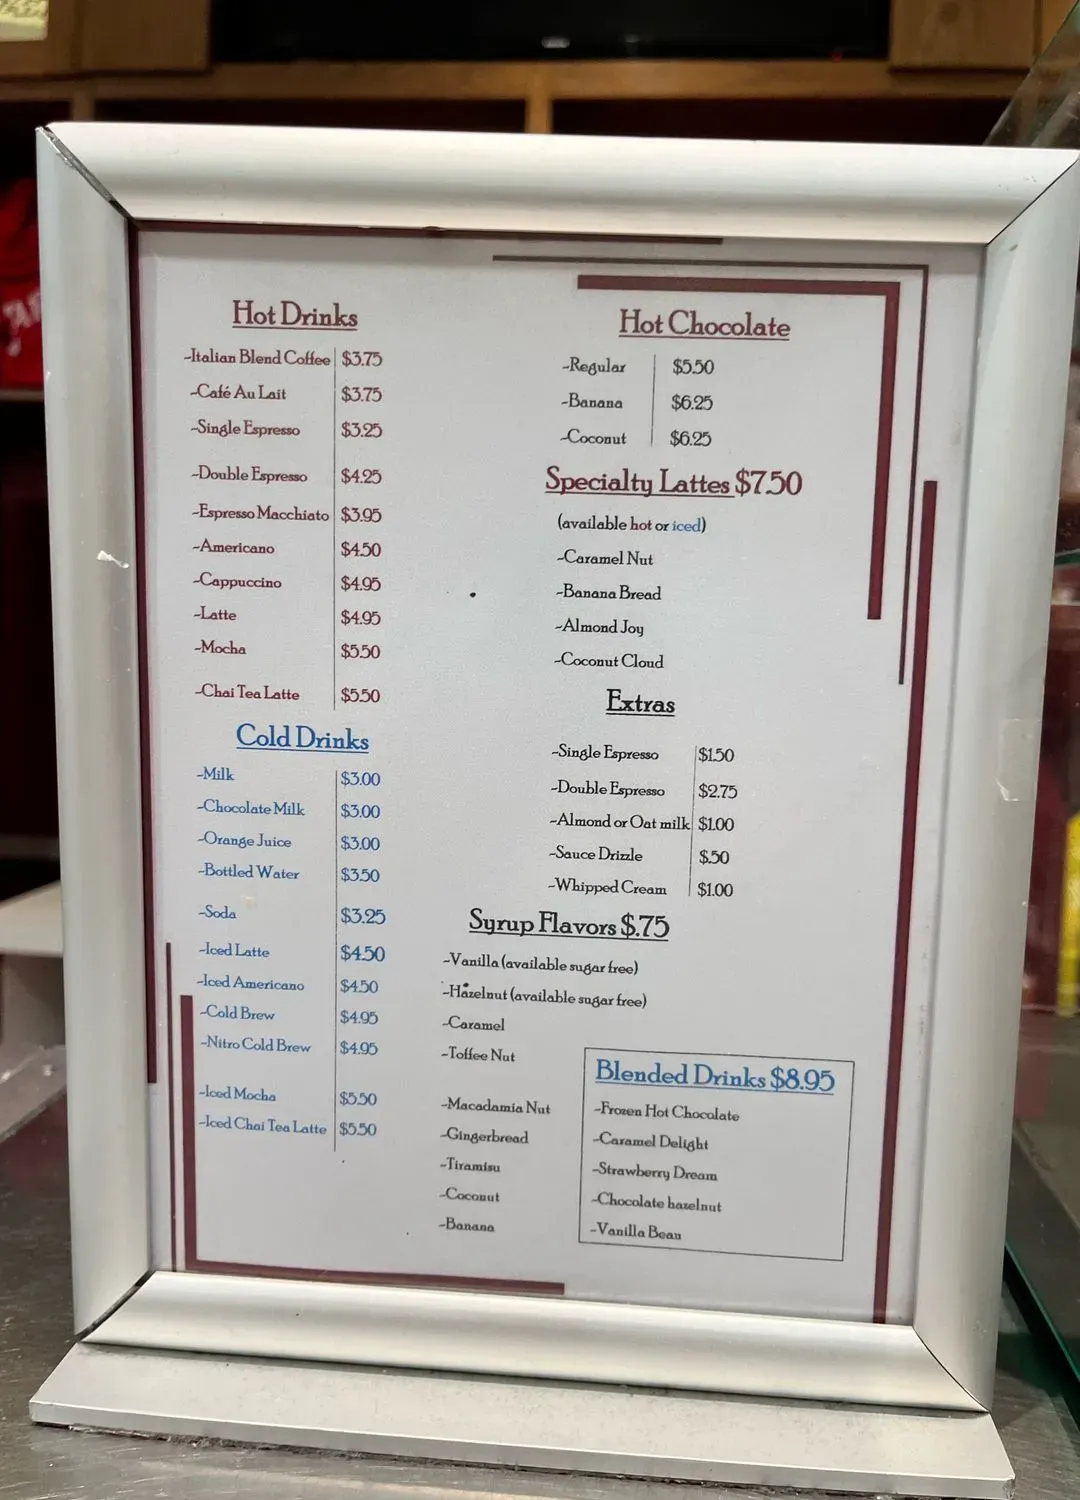 Hot Drinks
~Italian Blend Coffee $3.75
~Café Au Lait $3.75
~Single Espresso $3.25
~Double Espresso $4.25
~Espresso Macchiato $3.95
~Americano $4.50
~Cappuccino $4.95
~Latte $4.95
~Mocha $5.50
~Chai Tea Latte $5.50
Cold Drinks
~Milk $3.00
~Chocolate Milk $3.00
~Orange Juice $3.00
~Bottled Water $3.50
~Soda $3.25
~Iced Latte $4.50
~Iced Americano $4.50
~Cold Brew $4.95
~Nitro Cold Brew $4.95
~Iced Mocha $5.50
~Iced Chai Tea Latte $5.50
Hot Chocolate
~Regular $5.50
~Banana $6.25
~Coconut $6.25
Specialty Lattes $7.50
(available hot or iced)
~Caramel Nut
~Banana Bread
~Almond Joy
~Coconut Cloud
Extras
~Single Espresso $1.50
~Double Espresso $2.75
~Almond or Oat milk $1.00
~Sauce Drizzle $.50
~Whipped Cream $1.00
Syrup Flavors $.75
~Vanilla (available sugar free)
~Hazelnut (available sugar free)
~Caramel
~Toffee Nut
~Macadamia Nut
~Gingerbread
~Tiramisu
~Coconut
~Banana
Blended Drinks $8.95
~Frozen Hot Chocolate
~Caramel Delight
~Strawberry Dream
~Chocolate hazelnut
~Vanilla Bean